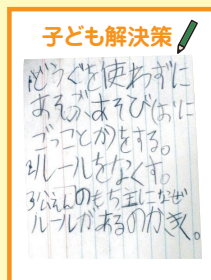 子ども解決策
1.どうぐを使わずに
あそぶあそび(おに
ごっことか)をする。
2.ルールをなくす。
3.公えんのもち主になぜ
ルールがあるのかきく。